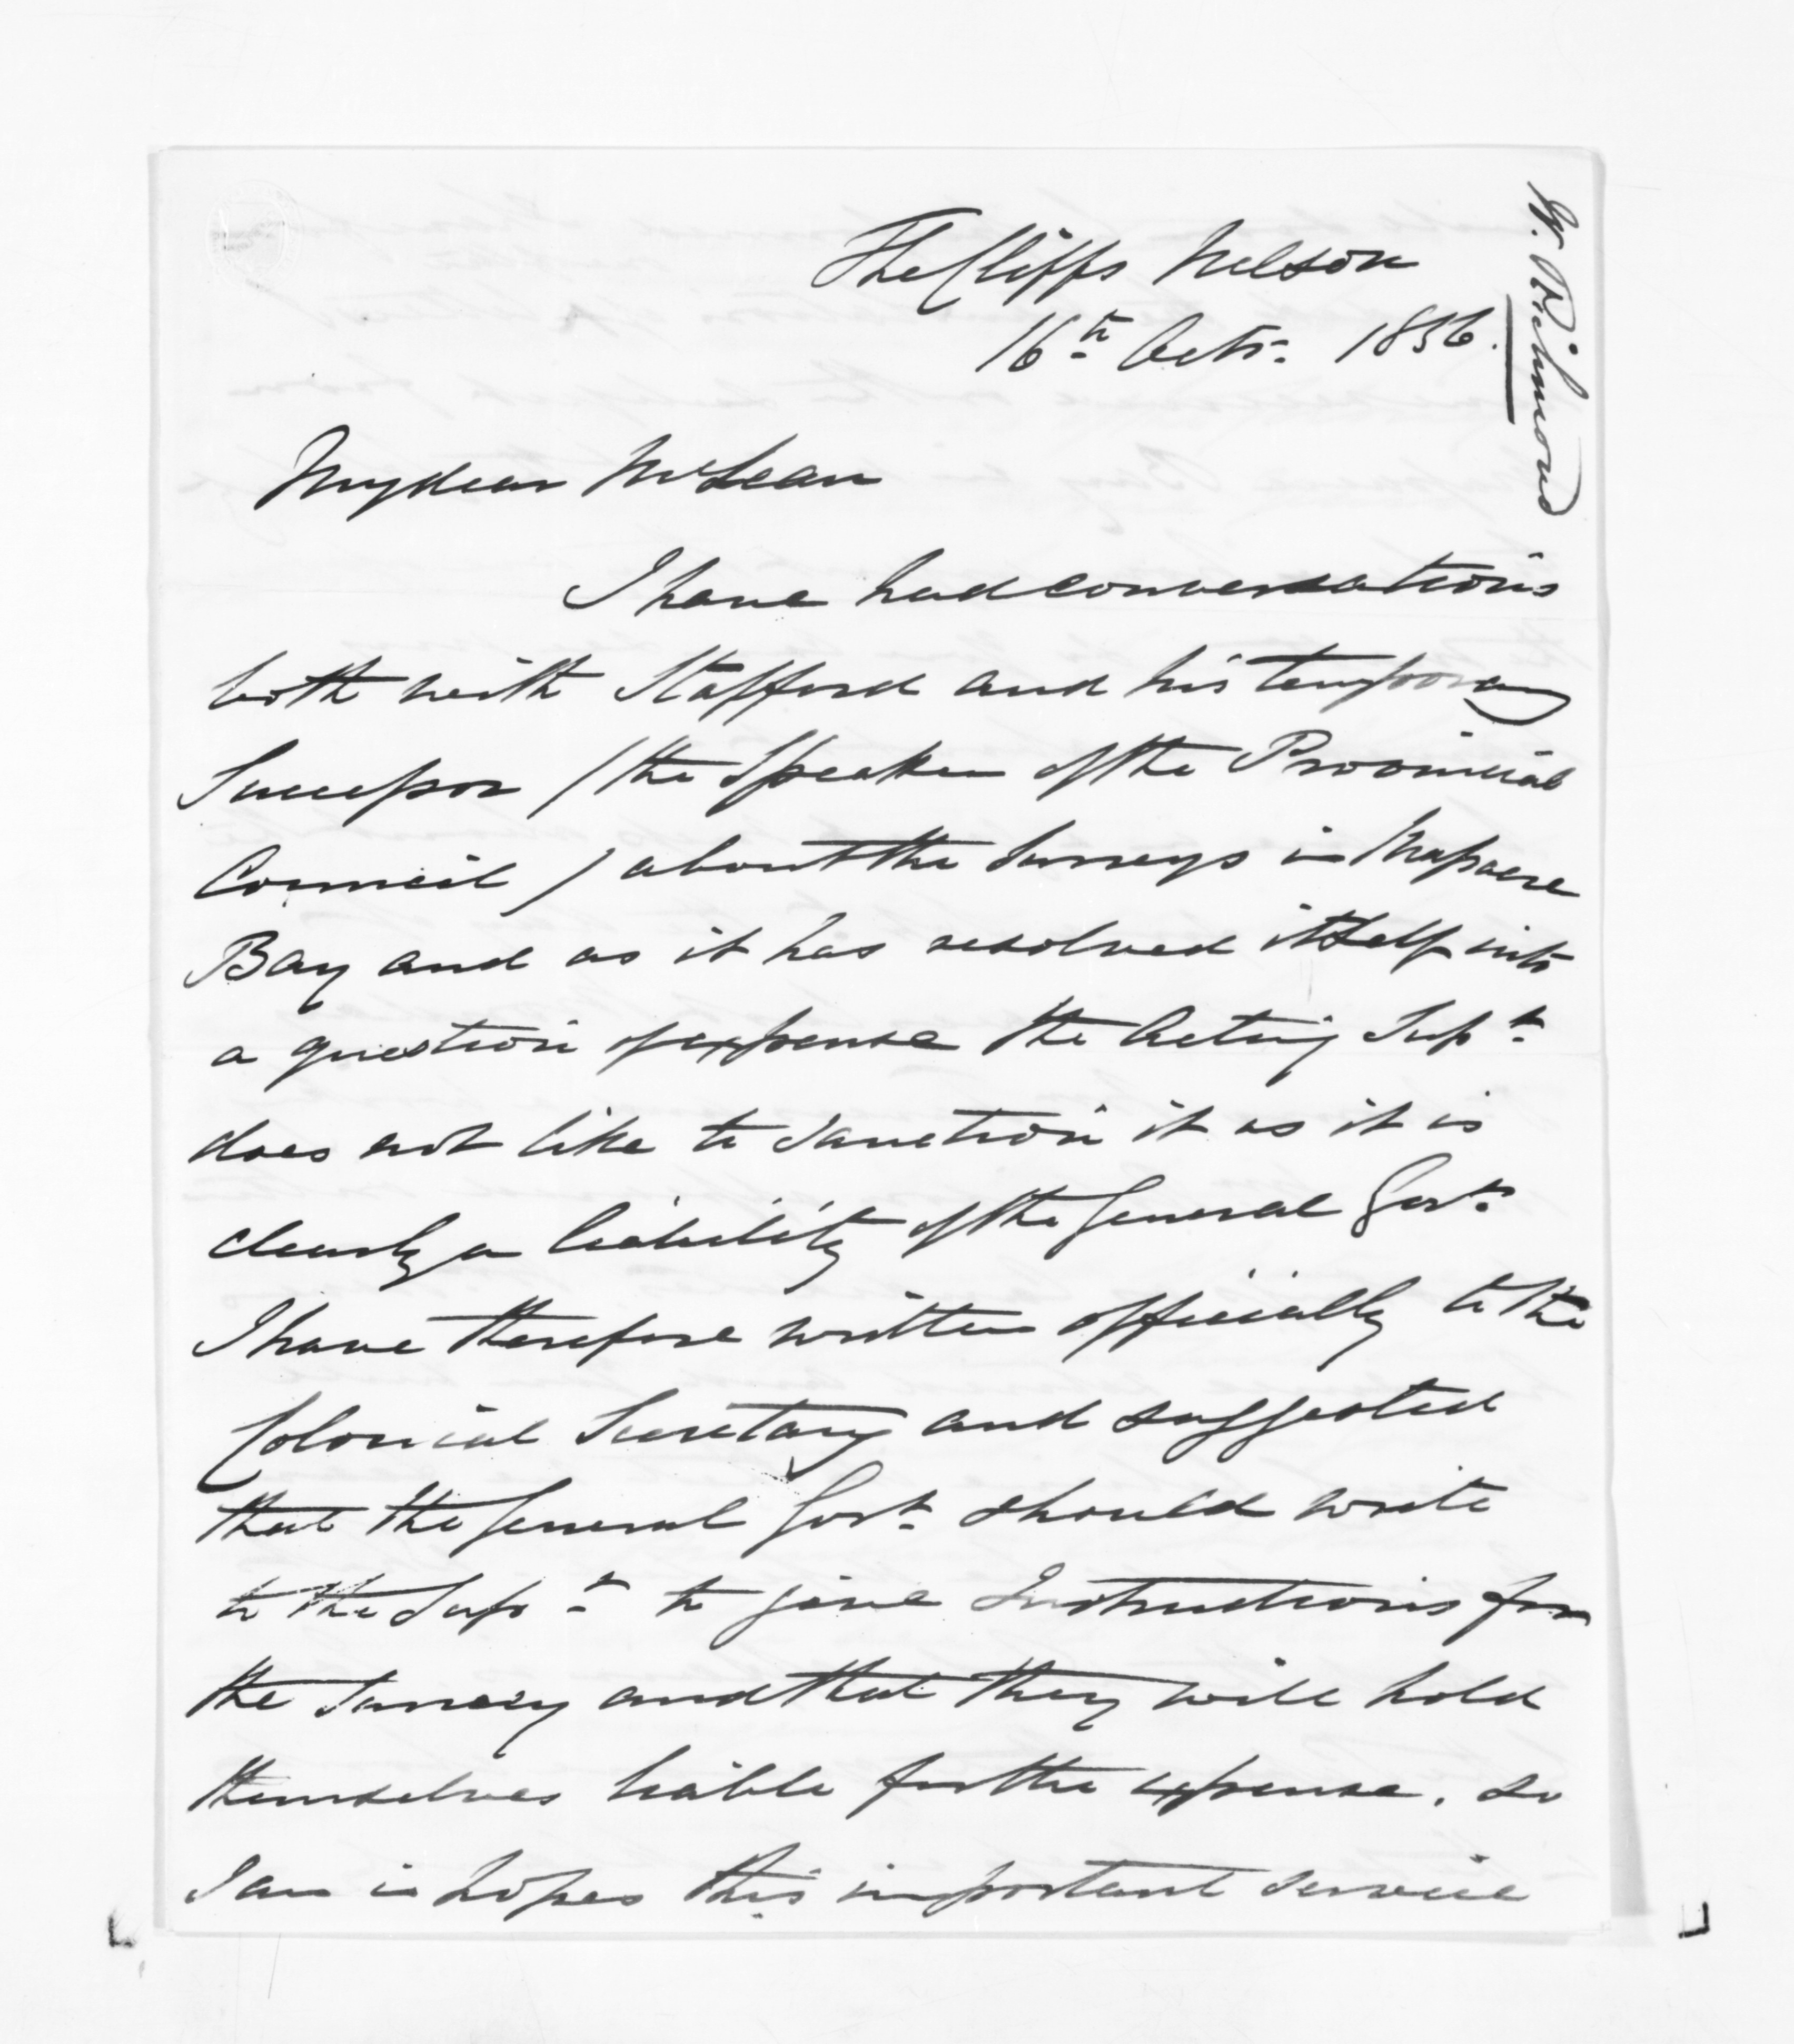 W. Richmond
The Cliffs Nelson
16th Octr. 1856.
My dear McLean
I have had conversations
both with Stafford and his temporary
Successor / the Speaker of the Provincial
Council / about the Surveys in Massacre
Bay and as it has resolved itself into
a question of expense the Acting Supt.
does not like to sanction it as it is
clearly a liability of the General Govt.
I have therefore written officially to the
Colonial Secretary and suggested
that the General Govt. should write
to the Supt. to give Instructions for
the Survey and that they will hold
themselves liable for the expense. So
I am in hopes this important service